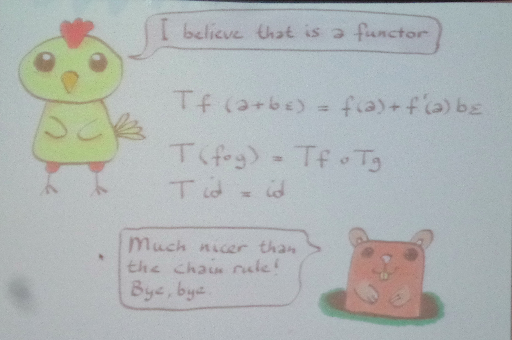 I believe that is a functor
Tf (a+bε) = f(a)+f'(a)bε
T(f∘g) = Tf ∘ Tg
T id = id
Much nicer than
the chain rule!
Bye, bye